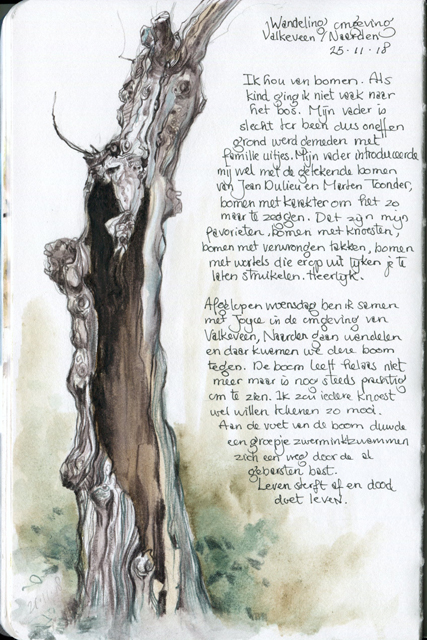 Wandeling omgeving
Valkeveen / Naarden
25-11-18
Ik hou van bomen. Als
kind ging ik niet vaak naar
het bos. Mijn vader is
slecht ter been dus oneffen
grond werd gemeden met
familie uitjes. Mijn vader introduceerde
mij wel met de getekende bomen
van Jean Dulieu en Marten Toonder,
bomen met karakter om het zo
maar te zeggen. Dat zijn mijn
favorieten. Bomen met knoesten,
bomen met verwrongen takken, bomen
met wortels die erop uit lijken je te
laten struikelen. Heerlijk.
Afgelopen woensdag ben ik samen
met Joyce in de omgeving van
Valkeveen, Naarden gaan wandelen
en daar kwamen we deze boom
tegen. De boom leeft helaas niet
meer maar is nog steeds prachtig
om te zien. Ik zou iedere knoest
wel willen tekenen zo mooi.
Aan de voet van de boom duwde
een groepje zwerminktzwammen
zich een weg door de al
gebarsten bast.
Leven sterft af en dood
doet leven.